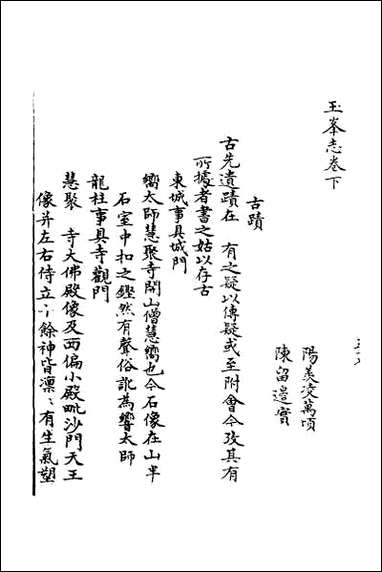 玉峯志卷下
陽羡凌萬頃
陳留邉實
古蹟
古先遺蹟在 有之疑以傳疑或至附會今攷其有
所據者書之姑以存古
東城事具城門
嚮太師慧聚寺開山僧慧嚮也今石像在山半
石室中扣之鏗然有聲俗訛為響太師
龍柱事具寺觀門
慧聚 寺大佛殿像及西偏小殿毗沙門天王
像并左右侍立十餘神皆凛〻有生氣塑